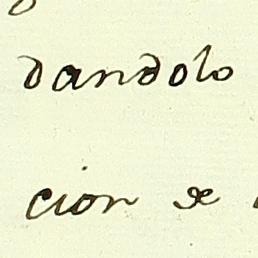 dandolo
cion de